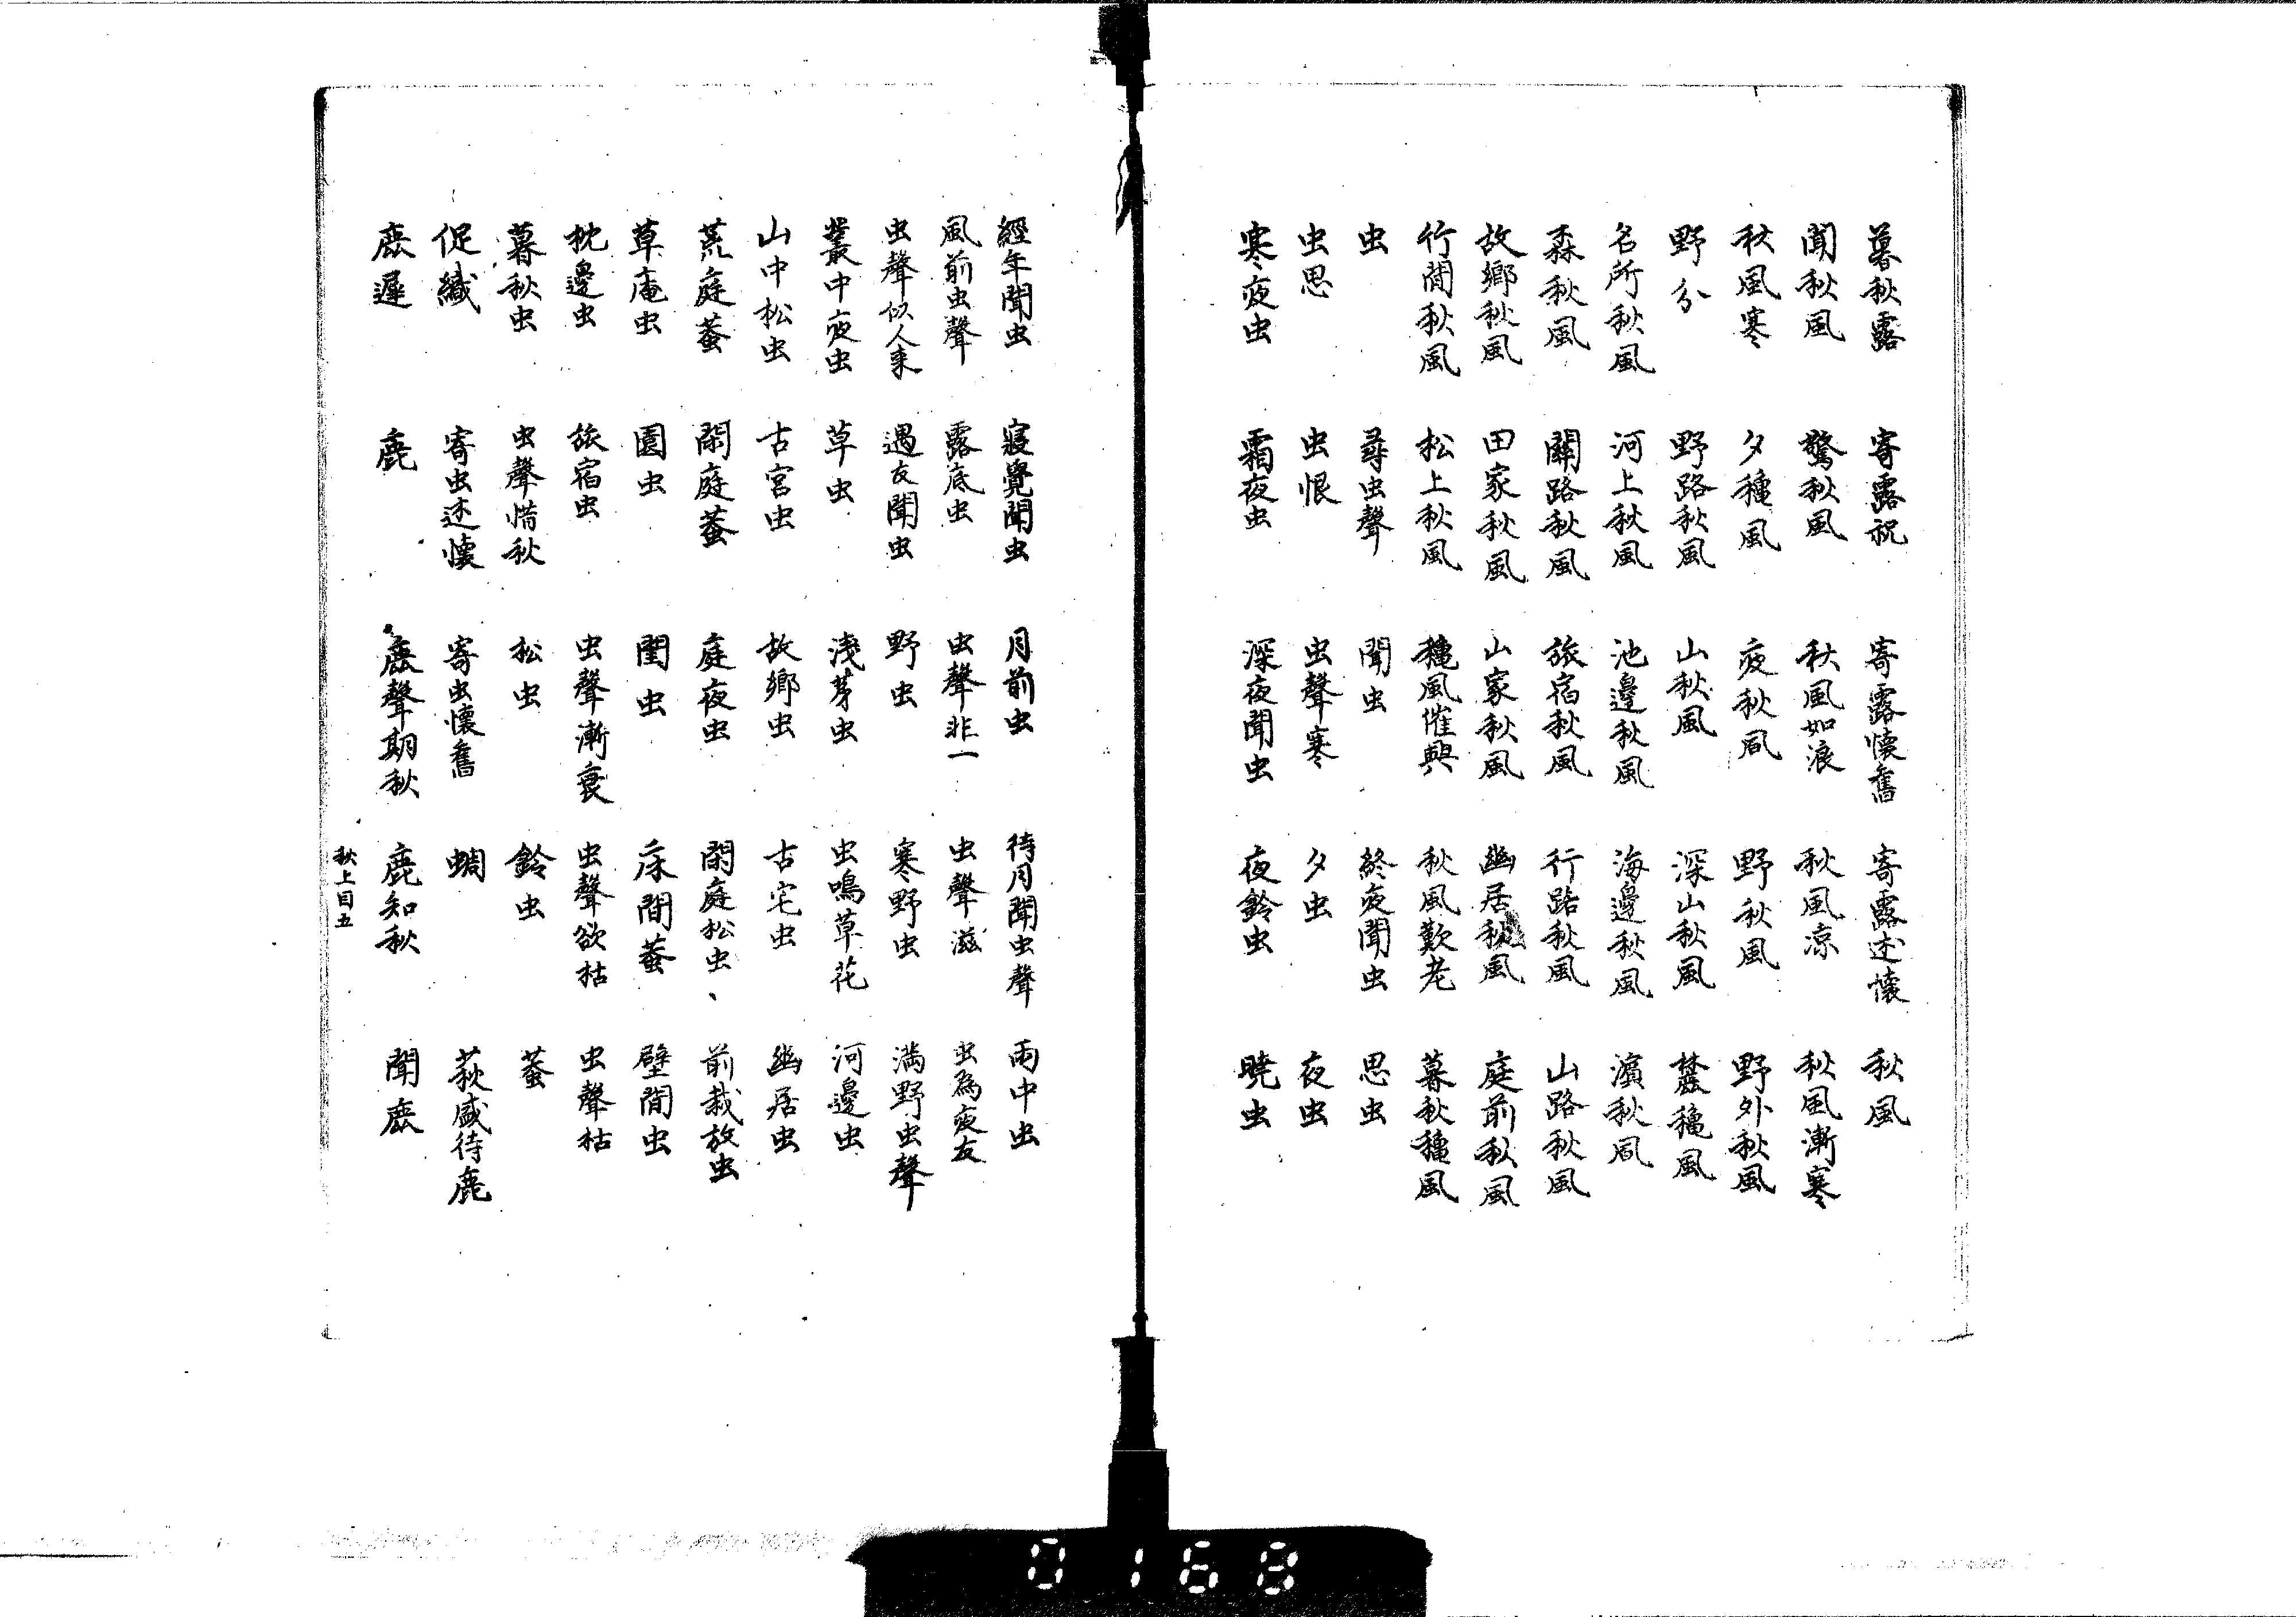 暮秋露 寄露祝 寄露懐舊 寄露述懐 秋風
聞秋風 驚秋風 秋風如浪 秋風凉 秋風漸寒
秋風寒 夕穐風 夜秋風 野秋風 野外秋風
野分 野路秋風 山秋風 深山秋風 麓穐風
名所秋風 河上秋風 池邊秋風 海邊秋風 濱秋風
森秋風 關路秋風 旅宿秋風 行路秋風 山路秋風
故鄉秋風 田家秋風 山家秋風 幽居秋風 庭前秋風
行間秋風 松上秋風 穐風催興 秋風歎老 暮秋穐風
虫 尋虫聲 聞虫 終夜聞虫 思虫
虫思 虫恨 虫聲寒 夕虫 夜虫
寒夜虫 霜夜虫 深夜聞虫 夜鈴虫 曉虫
經年聞虫 寝覺聞虫 月前虫 待月聞虫聲 雨中虫
風前虫聲 露底虫 虫聲非一 虫聲滋 虫為夜友
虫聲似人来 遇友聞虫 野虫 寒野虫 満野虫聲
叢中夜虫 草虫 淺芽虫 虫鳴草花 河邊虫
山中松虫 古宮虫 故鄉虫 古宅虫 幽居虫
荒庭蛬 閑庭蛬 庭夜虫 閑庭松虫、 前栽放虫
草庵虫 園虫 閨虫 床間蛬 壁間虫
枕邊虫 旅宿虫 虫聲漸衰 虫聲欲枯 虫聲枯
暮秋虫 虫聲惜秋 松虫 鈴虫 蛬
促織 寄虫述懐 寄虫懐舊 蜩 萩盛待鹿
鹿遲 鹿 鹿聲期秋 鹿知秋 聞鹿
秋上目五
0168